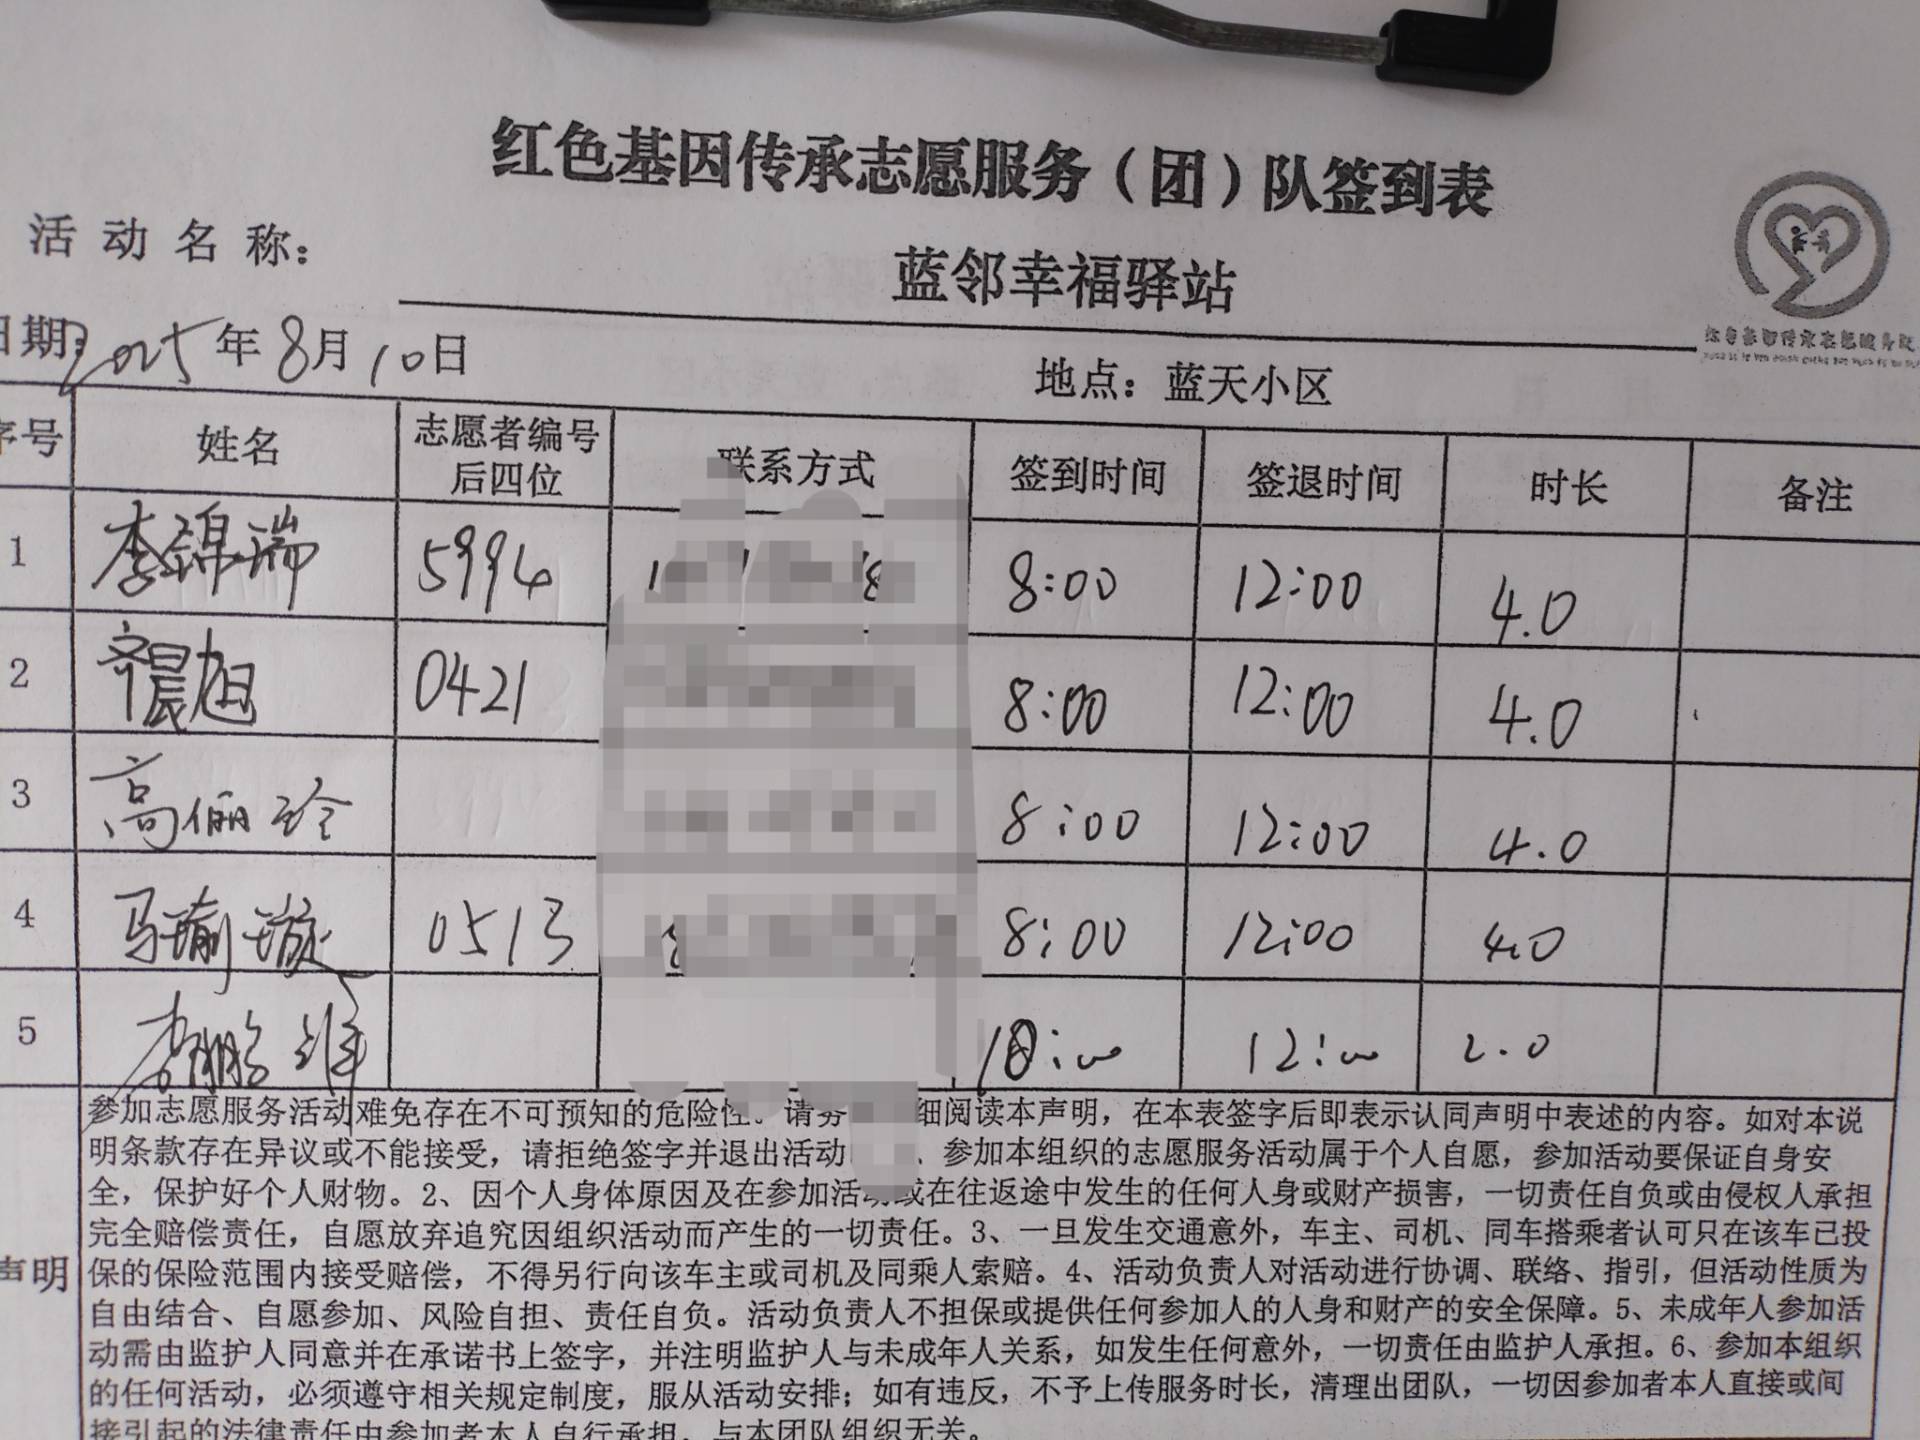 红色基因传承志愿服务（团）队签到表
活动名称：
蓝邻幸福驿站
日期：2025年8月10日
地点：蓝天小区
序号 姓名 志愿者编号后四位 联系方式 签到时间 签退时间 时长 备注
1 李锦瑞 5994 8:00 12:00 4.0
2 齐晨旭 0421 8:00 12:00 4.0
3 高俪玲 8:00 12:00 4.0
4 马瑜璇 0513 8:00 12:00 4.0
5 李鹏 10:00 12:00 2.0
声明
参加志愿服务活动难免存在不可预知的危险性。请务 细阅读本声明，在本表签字后即表示认同声明中表述的内容。如对本说
明条款存在异议或不能接受，请拒绝签字并退出活动 、参加本组织的志愿服务活动属于个人自愿，参加活动要保证自身安
全，保护好个人财物。2、因个人身体原因及在参加活动或在往返途中发生的任何人身或财产损害，一切责任自负或由侵权人承担
完全赔偿责任，自愿放弃追究因组织活动而产生的一切责任。3、一旦发生交通意外，车主、司机、同车搭乘者认可只在该车已投
保的保险范围内接受赔偿，不得另行向该车主或司机及同乘人索赔。4、活动负责人对活动进行协调、联络、指引，但活动性质为
自由结合、自愿参加、风险自担、责任自负。活动负责人不担保或提供任何参加人的人身和财产的安全保障。5、未成年人参加活
动需由监护人同意并在承诺书上签字，并注明监护人与未成年人关系，如发生任何意外，一切责任由监护人承担。6、参加本组织
的任何活动，必须遵守相关规定制度，服从活动安排；如有违反，不予上传服务时长，清理出团队，一切因参加者本人直接或间
接引起的法律责任由参加者本人自行承担，与本团队组织无关。